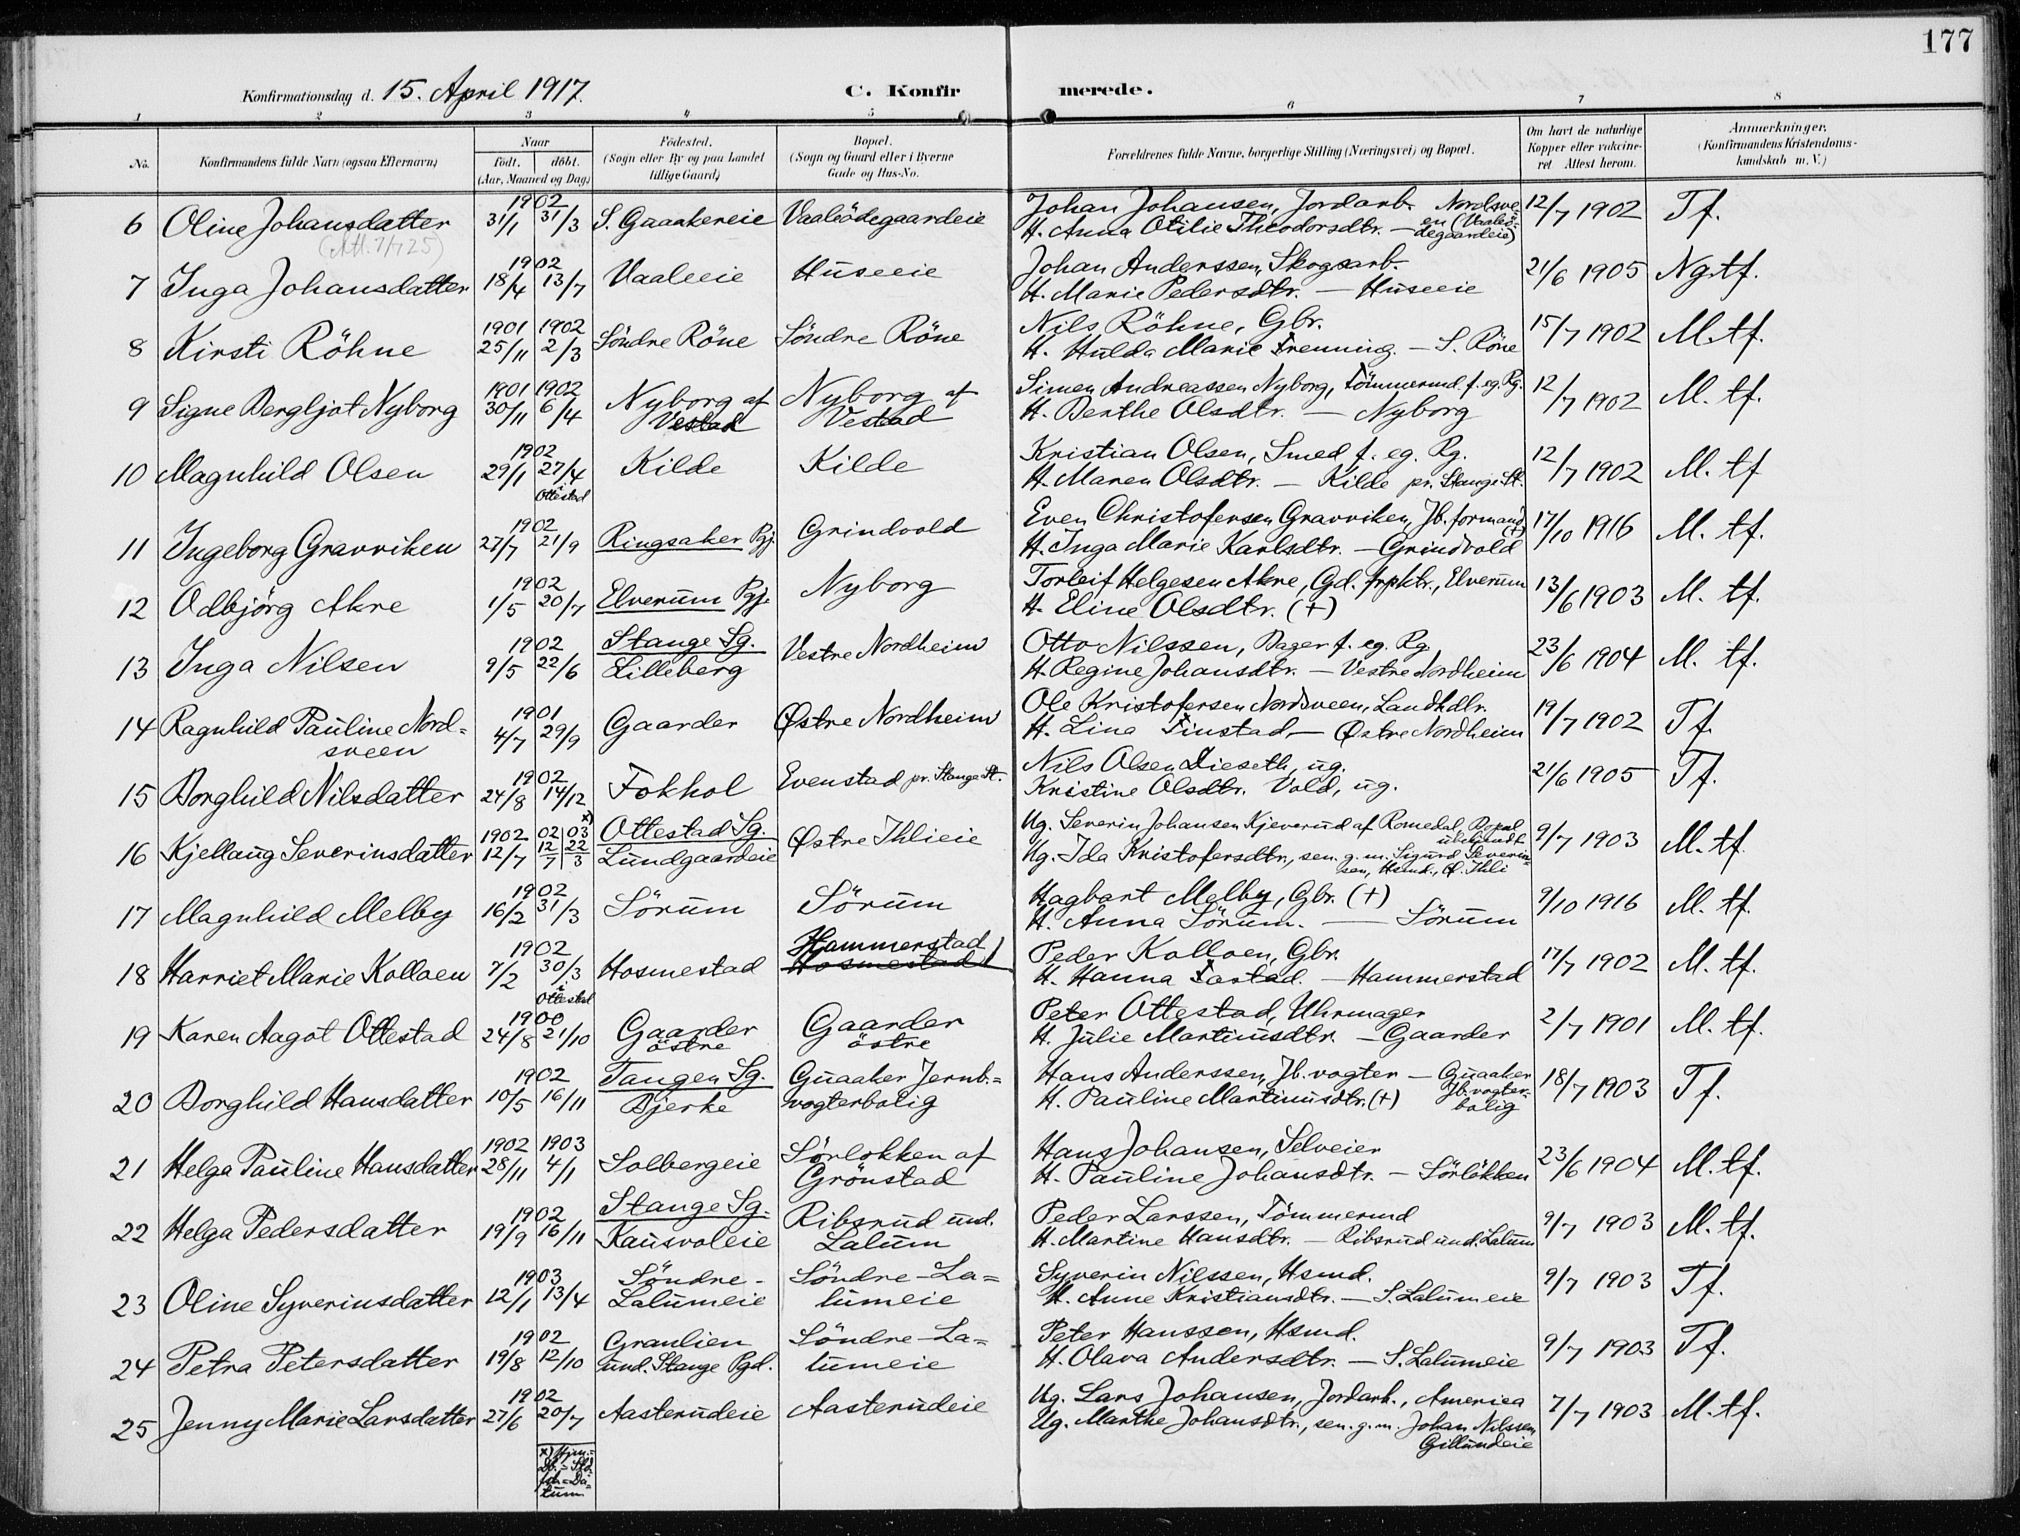 177
Konfirmationsdag d. 15. April 1917. C. Konfirmerede.
1 2 3 4 5 6 7 8
No. Konfirmandens fulde Navn (ogsaa Efternavn) Naar födt. döbt. (Aar, Maaned og Dag.) Födested. (Sogn eller By og paa Landet tillige Gaard.) Bopæl. (Sogn og Gaard eller i Byerne Gade og Hus-No. Forældrenes fulde Navne, borgerlige Stilling (Næringsvei) og Bopæl. Om havt de naturlige Kopper eller vakcineret. Attest herom. Anmerkninger. (Konfirmandens Kristendomskundskab m. V.)
6 Oline Johansdatter 1902 31/1 31/3 S. Guaakereie Vaalsödegaardeie Johan Johansen, Jordarb. Nordsveen (Vaalsödegaardeie) 12/7 1902 Tf.
H. Anna Otilie Theodorsdtr. —
7 Inga Johansdatter 1902 18/4 13/7 Vaaleeie Huseeie Johan Anderssen, Skogsarb. 21/6 1905 Ng. tf.
H. Marie Pedersdtr. — Huseeie
8 Kirsti Röhne 1901 25/11 1902 2/3 Söndre Röne Söndre Röne Nils Röhne, Gbr. 15/7 1902 M. tf.
H. Hulda Marie Frenning. — S. Röne
9 Signe Bergljot Nyborg 1901 30/11 1902 6/4 Nyborg af Vestad Nyborg af Vestad Simen Andreassen Nyborg, Tömmermd. f. eg. Rg. 12/7 1902 M. tf.
H. Berthe Olsdtr. — Nyborg
10 Magnhild Olsen 1902 29/1 27/4 i Ottestad Kilde Kilde Kristian Olsen, Smed f. eg. Rg. 12/7 1902 M. tf
H. Maren Olsdtr. — Kilde pr. Stange St.
11 Ingeborg Gravviken 1902 27/7 21/9 Ringsaker Pgj. Grindvold Even Christofersen Gravviken, Jb. formand (+) 17/10 1916 M. tf.
H. Inga Marie Karlsdtr. — Grindvold
12 Odbjörg Akre 1902 1/5 20/7 Elverum Pgj. Nyborg Torleif Helgesen Akre, Gd. frpktr., Elverum 13/6 1903 M. tf.
H. Eline Olsdtr. (+)
13 Inga Nilsen 1902 9/5 22/6 Stange Sg. Lilleberg Vestre Nordheim Otto Nilssen, Bager f. eg. Rg. 23/6 1904 M. tf.
H. Regine Johansdtr. — Vestre Nordheim
14 Ragnhild Pauline Nordsveen 1901 4/7 29/9 Gaarder Østre Nordheim Ole Kristofersen Nordsveen, Landhdlr. 19/7 1902 Tf.
H. Lina Finstad, — Østre Nordheim
15 Borghild Nilsdatter 1902 24/8 14/12 Fokhol Evenstad pr. Stange St. Nils Olsen Dieseth, ug. 21/6 1905 Tf.
Kristine Olsdtr. Vold, ug.
16 Kjellaug Severinsdatter 1902 12/7 02 12/7 03 22/3 x) Ottestad Sg. Lundgaardeie Østre Ihlieie Ug. Severin Johansen Kjeverud af Romedal, Bopæl ubekjendt 9/7 1903 M. tf
Ug. Ida Kristofersdtr., sen. g. m. Sigurd Severinsen, Hsmd., Ø. Ihli
17 Magnhild Melby 1902 16/2 31/3 Sörum Sörum Hagbart Melby, Gbr. (+) 9/10 1916 M. tf.
H. Anna Sörum. — Sörum
18 Harriet Marie Kolloen 1902 7/2 30/3 i Ottestad Hosmestad Hammerstad Hosmestad Peder Kolloen, Gbr. 17/7 1902 M. tf.
H. Hanna Tastad. — Hammerstad
19 Karen Aagot Ottestad 1900 24/8 21/10 Gaarder östre Gaarder östre Peter Ottestad, Uhrmager 2/7 1901 M. tf.
H. Julie Martinusdtr. — Gaarder
20 Borghild Hansdatter 1902 10/5 16/11 Tangen Sg. Bjerke Guaaker Jernb.=vogterbolig Hans Anderssen, Jb. vogter — Guaaker Jb. vogterbolig 18/7 1903 Tf.
H. Pauline Martinusdtr. (+)
21 Helga Pauline Hansdatter 1902 28/11 1903 4/1 Solbergeie Sörlokken af Grönstad Hans Johansen, Selveier 23/6 1904 M. tf.
H. Pauline Johansdtr. — Sörlökken
22 Helga Pedersdatter 1902 19/9 16/11 Stange Sg. Kausvoleie Ribsrud und. Lalum Peder Larssen, Tömmermd 9/7 1903 M. tf.
H. Martine Hansdtr. — Ribsrud und. Lalum
23 Oline Syverinsdatter 1903 12/1 13/4 Söndre-Lalumeie Söndre-La=lumeie Syverin Nilssen, Hsmd. 9/7 1903 Tf.
H. Anne Kristiansdtr. — S. Lalumeie
24 Petra Petersdatter 1902 19/8 12/10 Granlien und. Stange Pgd. Söndre-La=lumeie Peter Hanssen, Hsmd. 9/7 1903 Tf.
H. Olava Andersdtr. — S. Lalumeie
25 Jenny Marie Larsdatter 1902 27/6 20/7 Aasterudeie Aasterudeie Ug. Lars Johansen, Jordarb., America 7/7 1903 M. tf.
Ug. Marthe Johansdtr., sen. g. m. Johan Nilssen, Gillundeie